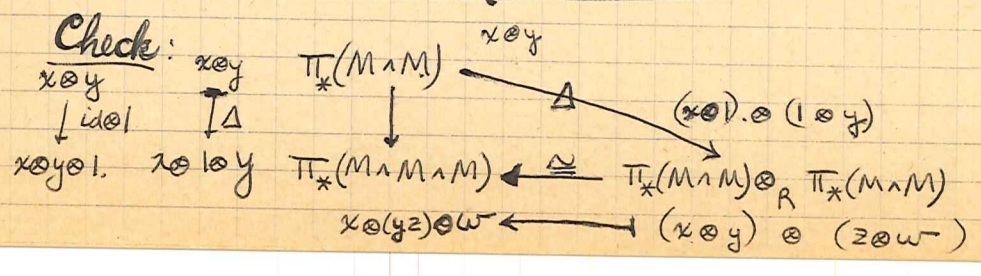 x⊗y
Check:
x⊗y x⊗y Π_*(M∧M)
↓ id⊗1 ↧Δ ↓ Δ (x⊗1).⊗(1⊗y)
x⊗y⊗1. x⊗1⊗y Π_*(M∧M∧M) ←≅ Π_*(M∧M)⊗_R Π_*(M∧M)
x⊗(yz)⊗w ↤ (x⊗y) ⊗ (z⊗w)